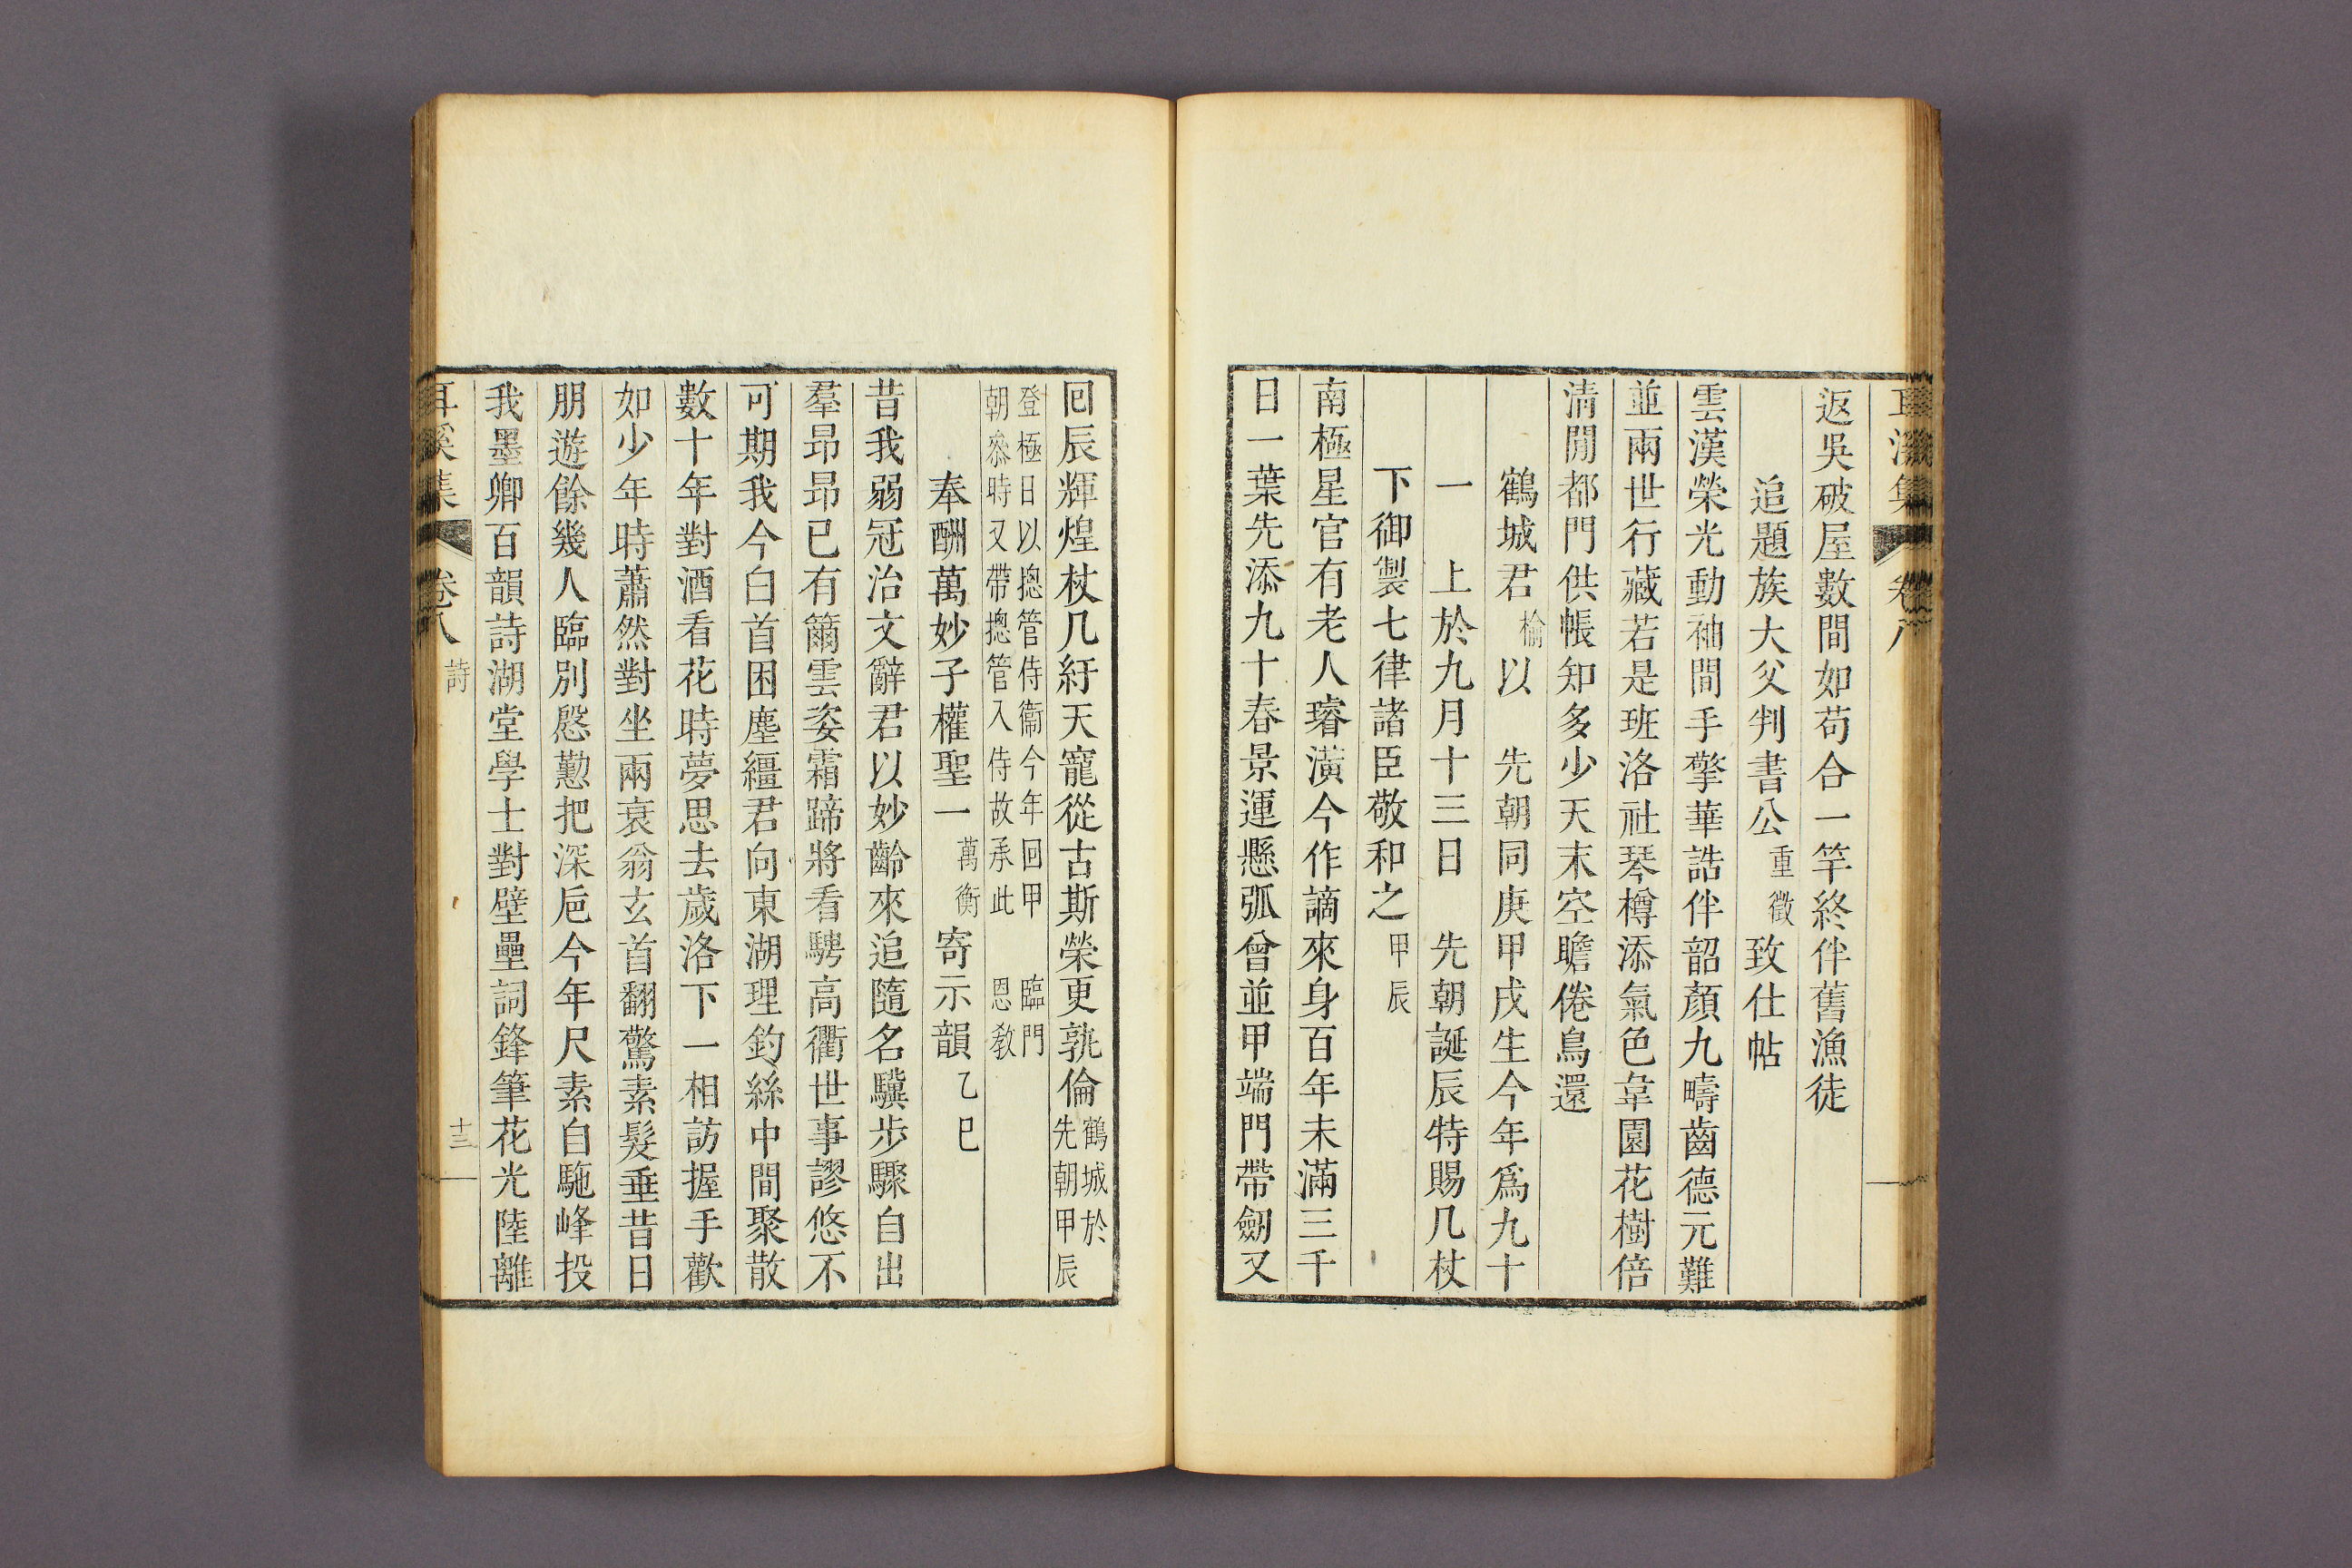 耳溪集 卷八
返吳破屋數間如苟合一竿終伴舊漁徒
追題族大父判書公重徵致仕帖
雲漢榮光動袖間手擎華誥伴韶顏九疇齒德元難
並兩世行藏若是班洛社琴樽添氣色韋園花樹倍
清閒都門供帳知多少天末空瞻倦鳥還
鶴城君楡以 先朝同庚甲戌生今年爲九十
一 上於九月十三日 先朝誕辰特賜几杖
下御製七律諸臣敬和之甲辰
南極星官有老人璿潢今作謫來身百年未滿三千
日一葉先添九十春景運懸弧曾並甲端門帶劒又
回辰輝煌杖几紆天寵從古斯榮更孰倫鶴城於先朝甲辰
登極日以摠管侍衞今年回甲 臨門
朝叅時又帶摠管入侍故承此 恩敎
奉酬萬妙子權聖一萬衡寄示韻乙巳
昔我弱冠治文辭君以妙齡來追隨名驥步驟自出
羣昻昻已有籋雲姿霜蹄將看騁高衢世事謬悠不
可期我今白首困塵纆君向東湖理釣絲中間聚散
數十年對酒看花時夢思去歲洛下一相訪握手歡
如少年時蕭然對坐兩衰翁玄首翻驚素髮垂昔日
朋遊餘幾人臨別慇懃把深巵今年尺素自駞峰投
我墨卿百韻詩湖堂學士對壁壘詞鋒筆花光陸離
耳溪集 卷八 詩 十三